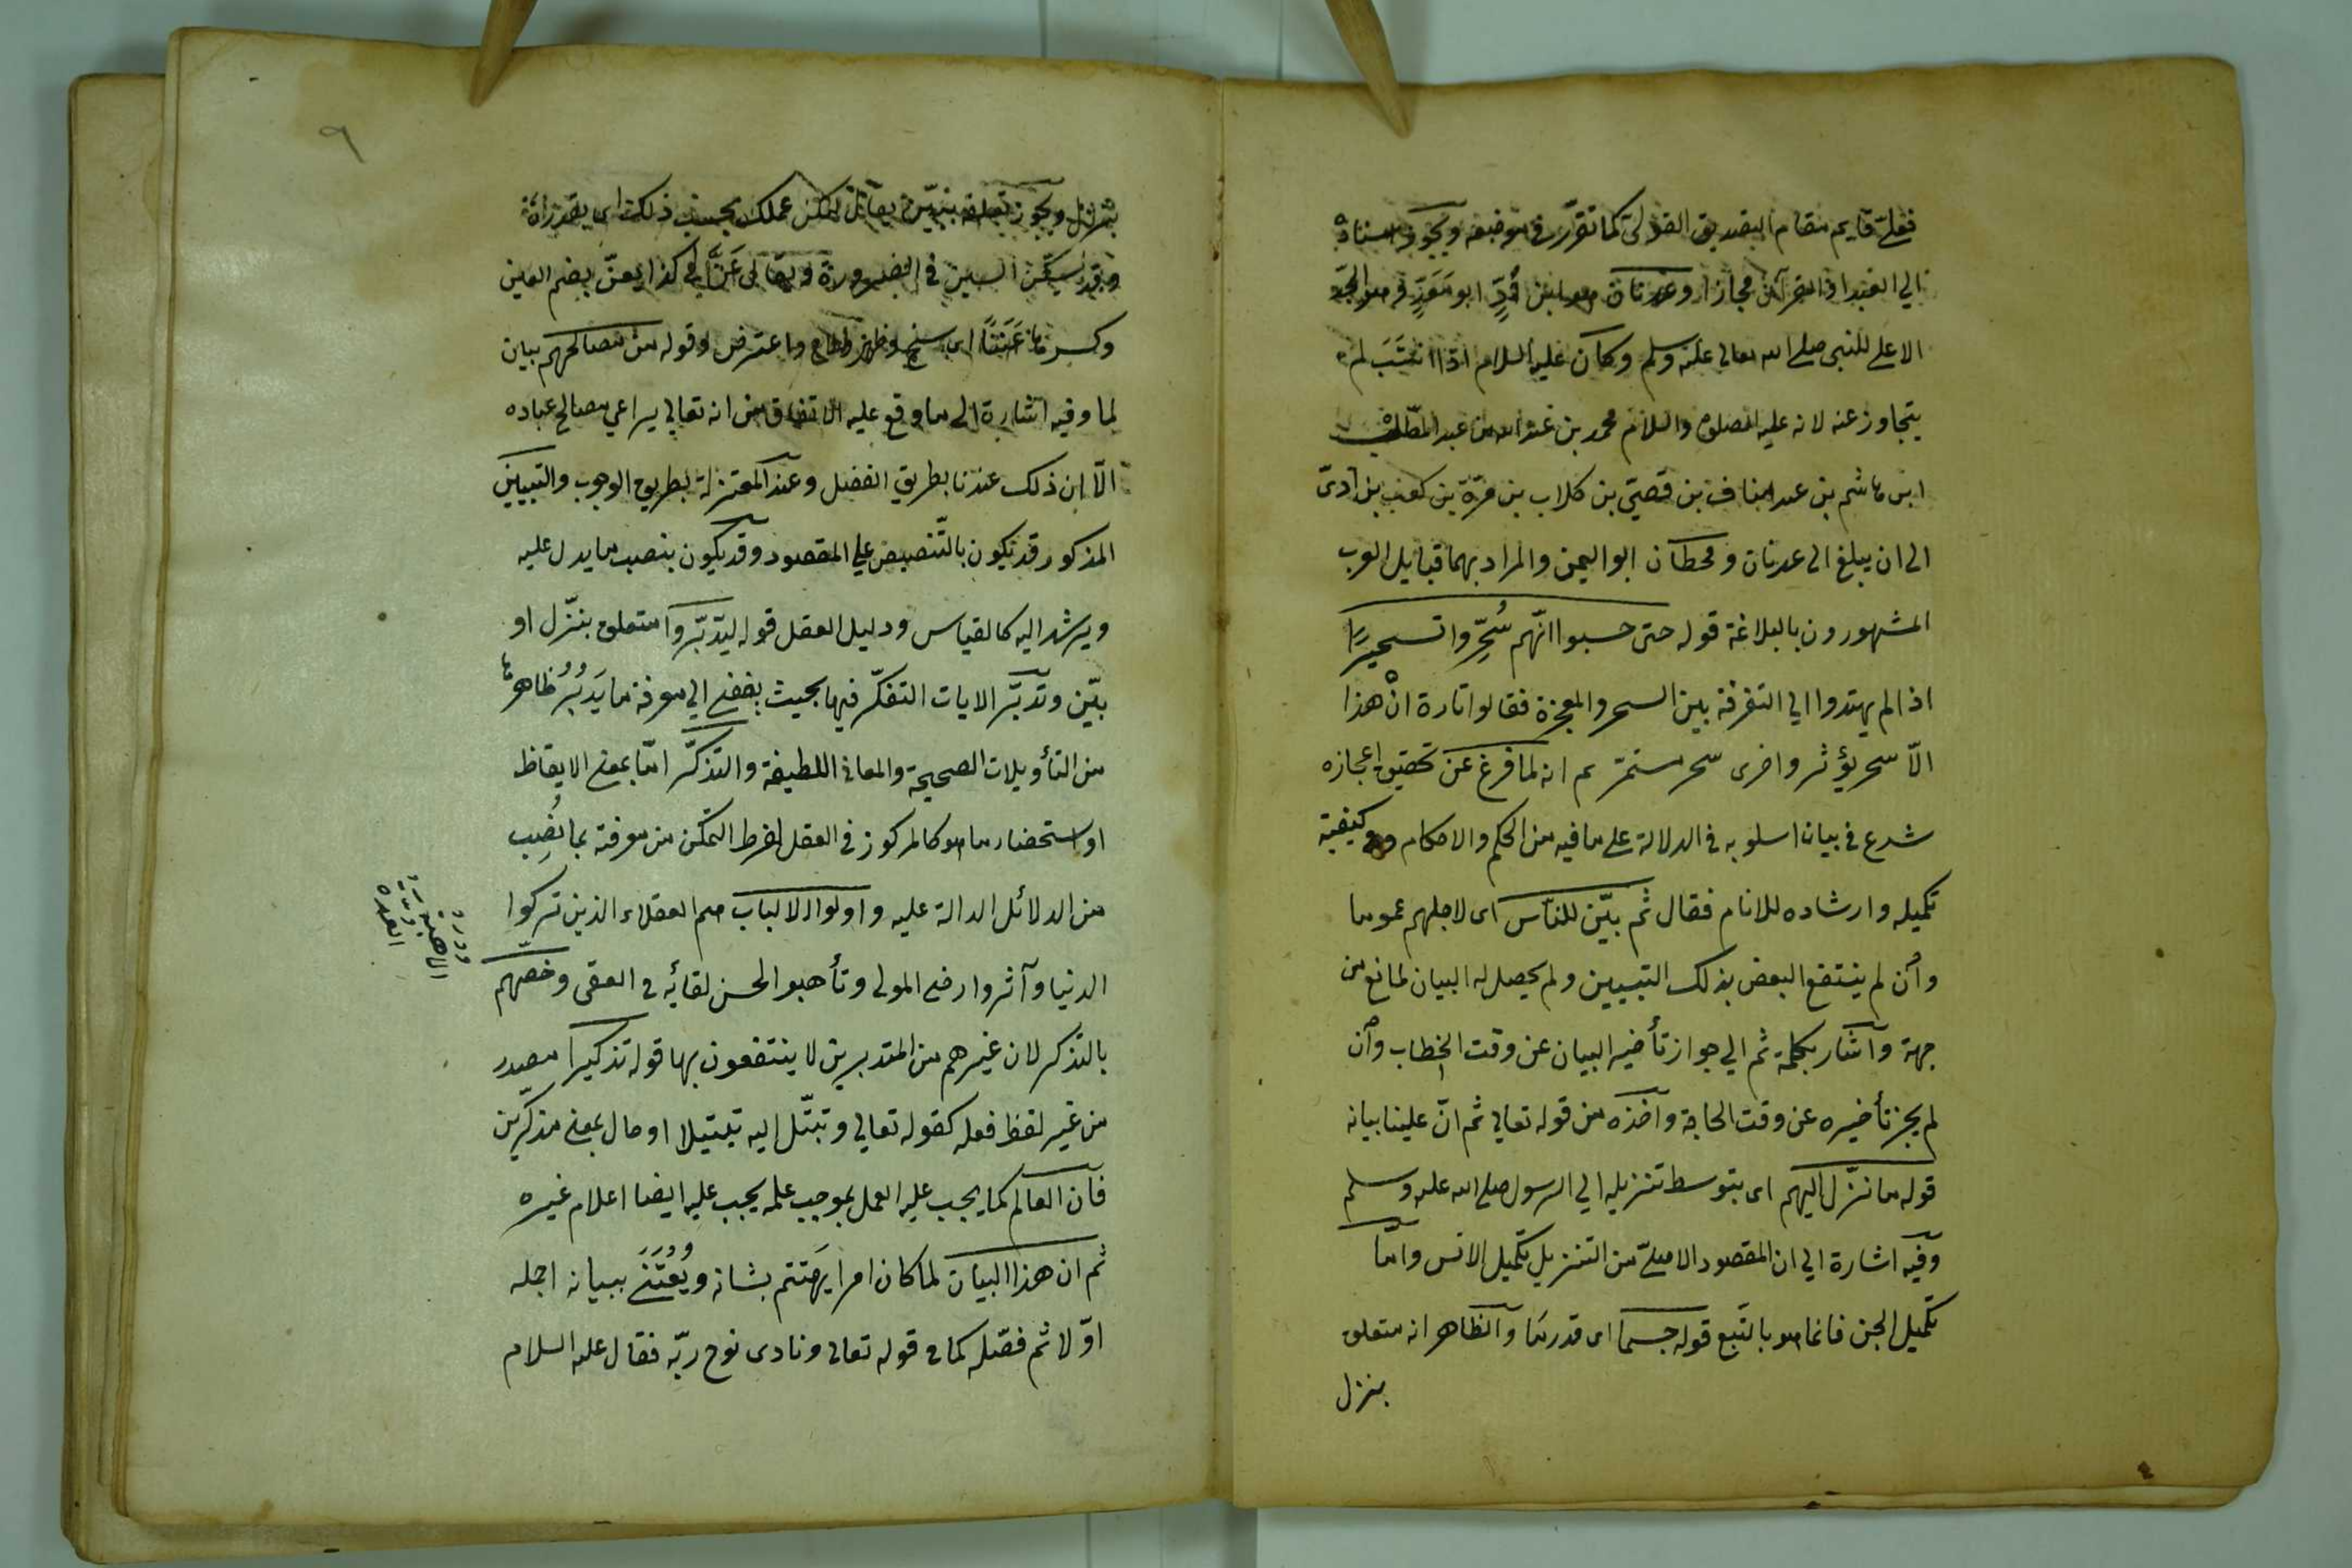 فعلى قايم مقام التصديق القولى كما تقرر فى موضعه ويجوز اسناده
الي العبد او القرآن مجازا وعدنان هو ابن أدٍّ ابو مَعَدٍّ وهو الجد
الاعلى للنبى صلى الله تعالى عليه وسلم وكان عليه السلام اذا انتَسَبَ لم
يتجاوز عنه لانه عليه الصلوة والسلام محمد بن عبد الله بن عبد المطّلب
ابن هاشم بن عبد مناف بن قصىّ بن كلاب بن مرّة بن كعب بن لؤىّ
الى ان يبلغ الى عدنان وقحطان ابو اليمن والمراد بهما قبايل العرب
المشهورون بالبلاغة قوله حتى حسبوا انّهم سُحِّروا تسحيرًا
اذا لم يهتدوا الي التفرقة بين السحر والمعجزة فقالوا تارة انْ هذا
الّا سحر يؤثر واخرى سحر مستمرّ ثم انه لما فرغ عن تحقيق اعجازه
شرع في بيان اسلوبه في الدلالة على ما فيه من الحكم والاحكام وكيفية
تكميله وارشاده للانام فقال ثم بيّن للناس اى لاجلهم عموما
وأن لم ينتفع البعض بذلك التبيين ولم يحصل له البيان لمانع من
جهة وآشار بكلمة ثم الي جواز تأخير البيان عن وقت الخطاب وأن
لم يجز تأخيره عن وقت الحاجة وآخذه من قوله تعالي ثم انّ علينا بيانه
قوله ما نزّل اليهم اى بتوسط تنزيله الي الرسول صلى الله عليه وسلم
وفيه اشارة الي ان المقصود الاصلىّ من التنزيل تكميل الانس وامّا
تكميل الجن فانما هو بالتبع قوله حسبما اى قدر ما والظاهر انه متعلق
بنزل
بنزل ويجوز تعلقه ببيّن يقال ليكن عملك بحسب ذلك اى بقدره
وقد يسكّن السين في الضرورة ويقال عَنَّ لي كذا يعنّ بضم العين
وكسرها عَنَنًا اى سنح وظهر واعترض وقوله من مصالحهم بيان
لما وفيه اشارة الى ما وقع عليه الاتفاق من انه تعالي يراعي مصالح عباده
الّا ان ذلك عندنا بطريق الفضل وعند المعتزلة بطريق الوجوب والتبيين
المذكور قد يكون بالتّنصيص علي المقصود وقد يكون بنصب ما يدل عليه
ويرشد اليه كالقياس ودليل العقل قوله ليدّبّروا متعلق بنزّل او
بيّن وتدبّر الايات التفكّر فيها بحيث يفضى الي معرفة ما يَدبُرُ ظاهرها
من التأويلات الصحيحة والمعانى اللطيفة والتذكّر امّا بمعنى الايقاظ
او استحضار ما هو كالمركوز في العقل لفرط التمكن من معرفته بما نُصِب
من الدلائل الدالة عليه واولوا الالباب هم العقلاء الذين تركوا
الدنيا وآثروا رضى المولى وتأهبوا لحسن لقائه في العقبى وخصّهم
بالتذكر لان غيرهم من المتدبرين لا ينتفعون بها قوله تذكيرا مصدر
من غير لفظ فعله كقوله تعالي وتبتّل اليه تبتيلا او حال بمعنى مذكّرين
فان العالم كما يجب عليه العمل بموجب علمه يجب عليه ايضا اعلام غيره
ثم ان هذا البيان لما كان امرا يَهتم بشانه ويُعْتَنَى ببيانه اجمله
اوّلا ثم فصّله كما فى قوله تعالى ونادى نوح ربّه فقال عليه السلام